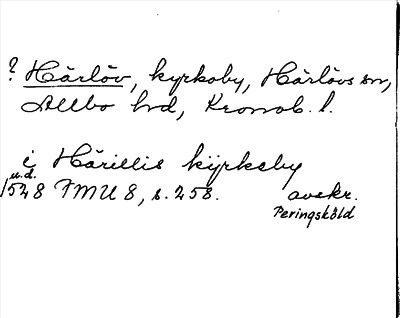 ? Härlöv, kyrkoby, Härlövs sn,
Allbo hd, Kronob. l.
i Härillis kijrkeby
u.d.
1528 FMU 8, s. 258. avskr.
Peringsköld